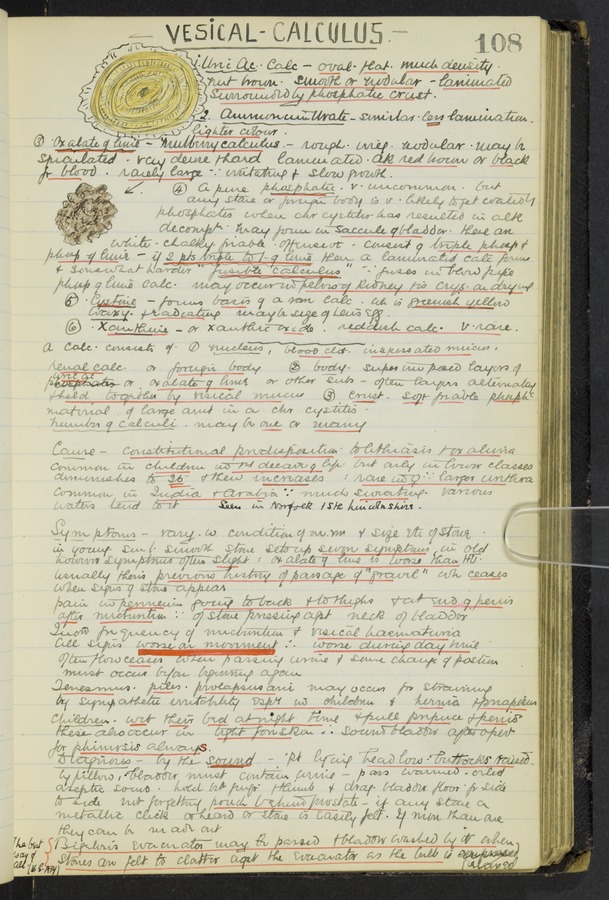 — VESICAL - CALCULUS. —
108
1. Uric Ac. Calc — oval. flat. much density.
nut brown. smooth or nodular — laminated
Surrounded by phosphatic crust.
2. Ammonium Urate — similar. less lamination.
lighter colour.
③ Oxalate of lime — Mulberry calculus. — rough. irreg. nodular. may be
spiculated. very dense & hard laminated. dk red brown or black
fr blood. rarely large ∵ irritating & slow growth.
④ A pure phosphatic. v. uncommon. but
any stone or foreign body is v. likely to get coated c̄
phosphates when chr cystitis has resulted in alk
decompn. May form in saccule of bladder. these are
white. chalky friable. offensive. — consist of triple phosp &
phosp of lime — if 2 pts triple to 1 of lime then a laminated calc forms
& somewhat harder "fusible calculus" ∵ fuses in blow pipe
phosp of lime calc. may occur in pelvis of kidney
⑤ Cystine — forms basis of a rare calc. wh is greenish yellow
waxy. & radiating may be size of hens egg.
⑥ Xanthine — or xanthic oxide. reddish calc. v. rare.
A Calc. consists of ① nucleus, blood clot. inspissated mucus.
renal calc. or foreign body ② body. superimposed layers of
or oxalate of lime or other subs — often layers alternating
& held together by vesical mucus ③ crust. soft friable phosph
material of large amt in a chr cystitis.
Number of calculi. may be one or many
Cause — Constitutional predisposition to lithiasis & oxaluria
common in children in 1st decade of life but only in lower classes
diminishes to 25 & then increases : rare in ♀ ∵ larger urethra
Common in India & Arabia ∵ much sweating. various
waters tend to it Seen in Norfolk & Lincolnshire.
Symptoms — vary. w condition of m.m & size etc of stone.
in young smooth stone sets up severe symptoms, in old
however symptoms often slight : oxalate of lime is worse than
usually theres previous history of passage of "gravel" wh ceases
when signs of stone appear
pain in perineum going to back & to thighs & at end of penis
after micturition ∵ of stone pressing agst neck of bladder
Incrd frequency of micturition & vesical haematuria
all signs worse on movement ∴ worse during day time
Often flow ceases when passing urine & some change of position
must occur before beginning again
Tenesmus. piles. prolapsus ani may occur fr straining
by sympathetic irritability espy in children & hernia & priapism
Children. wet their bed at night time & pull prepuce & penis
these also occur in tight foreskin ∴ sound bladder after opern
for phimosis always.
Diagnosis — by the sound — Pt lying head low. buttocks raised
by pillows, bladder must contain urine — pass warmed. oiled
aseptic sound. hold bet fingr & thumb & drag bladder floor fr side
to side not forgetting pouch behind prostate — if any stone a
metallic click is heard or stone is easily felt. if more than one
they can be made out
Bigelow's evacuator may be passed & bladder washed by it when
stones are felt to clatter agst the evacuator as the bulb is
relaxed
The best
way of
all